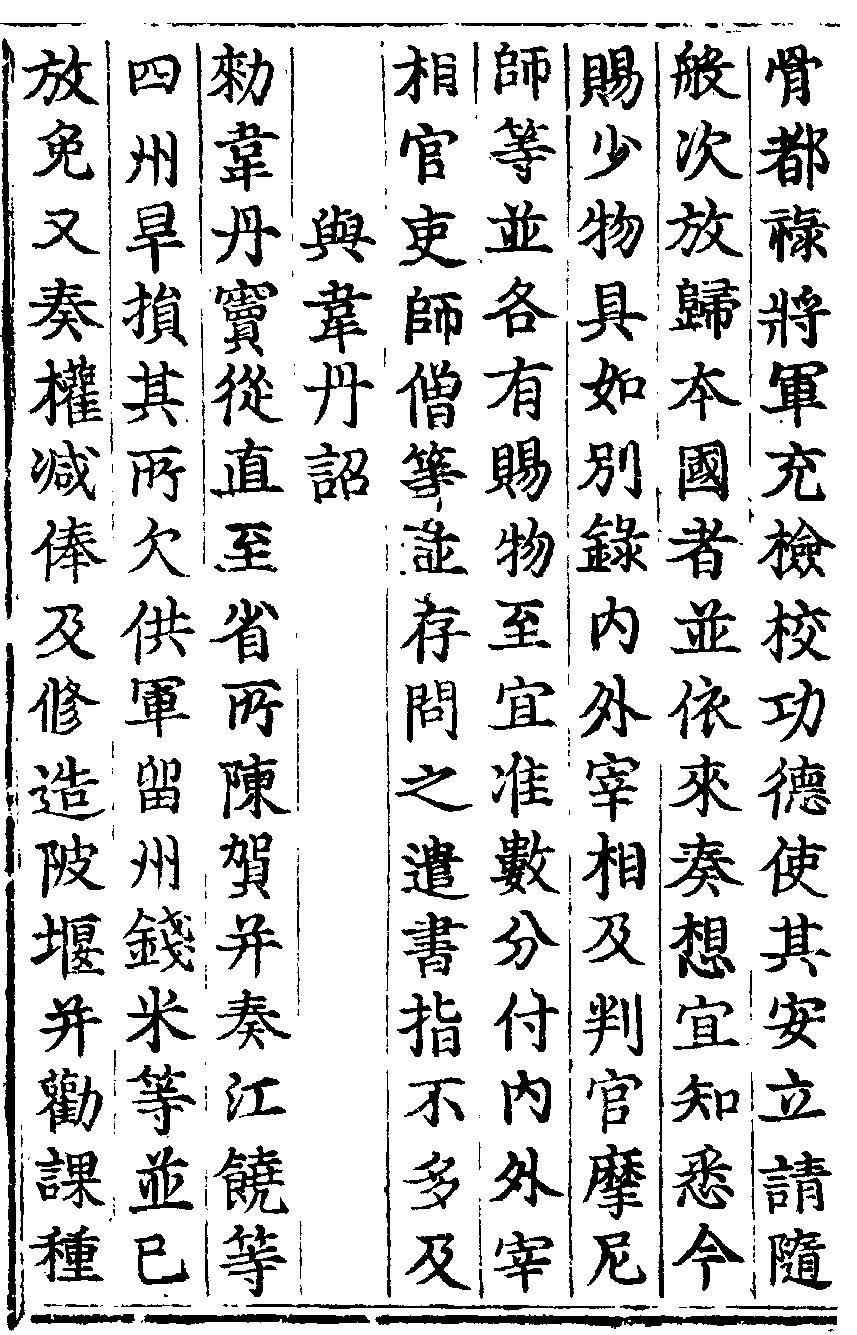 骨都祿將軍充檢校功德使其安立請隨
般次放歸本國者並依來奏想宜知悉今
賜少物具如別錄内外宰相及判官摩尼
師等並各有賜物至宜准數分付内外宰
相官吏師僧等並存問之遣書指不多及
與韋丹詔
勑韋丹竇從直至省所陳賀并奏江饒等
四州旱損其所欠供軍留州錢米等並已
放免又奏權減俸及修造陂堰并勸課種